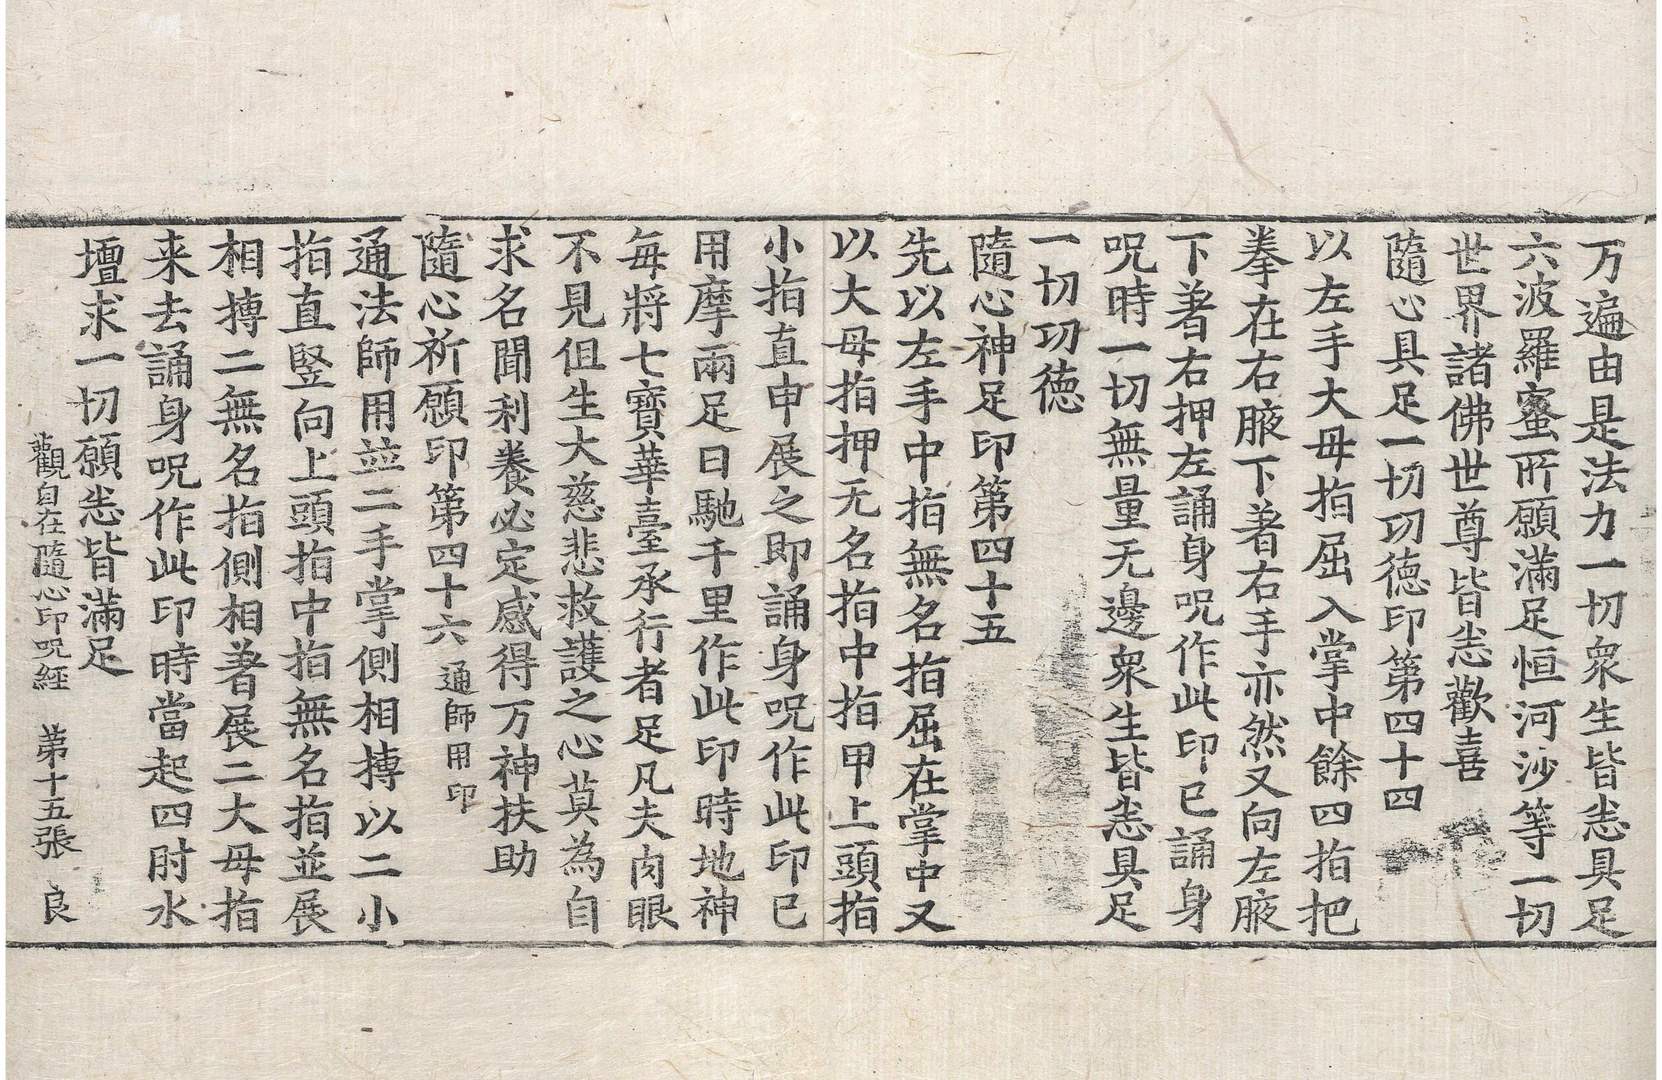 万遍由是法力一切衆生皆悉具足
六波羅蜜所願滿足恒河沙等一切
世界諸佛世尊皆悉歡喜
隨心具足一切功德印第四十四
以左手大母指屈入掌中餘四指把
拳在右腋下著右手亦然又向左腋
下著右押左誦身呪作此印已誦身
呪時一切無量无邊衆生皆悉具足
一切功德
隨心神足印第四十五
先以左手中指無名指屈在掌中又
以大母指押无名指中指甲上頭指
小指直申展之即誦身呪作此印已
用摩兩足日馳千里作此印時地神
每將七寶華臺承行者足凡夫肉眼
不見但生大慈悲救護之心莫為自
求名聞利養必定感得万神扶助
隨心祈願印第四十六 通師用印
通法師用並二手掌側相摶以二小
指直竪向上頭指中指無名指並展
相摶二無名指側相著展二大母指
来去誦身呪作此印時當起四肘水
壇求一切願悉皆滿足
觀自在隨心印呪経 第十五張 良